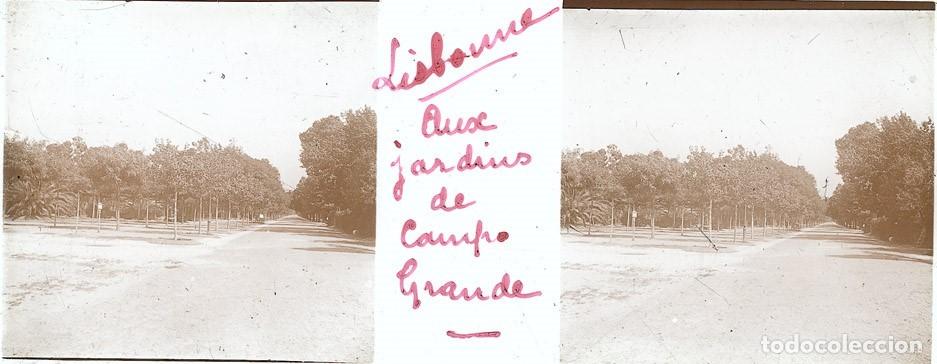 Lisbonne
Aux
jardins
de
Campo
Grande
todocoleccion